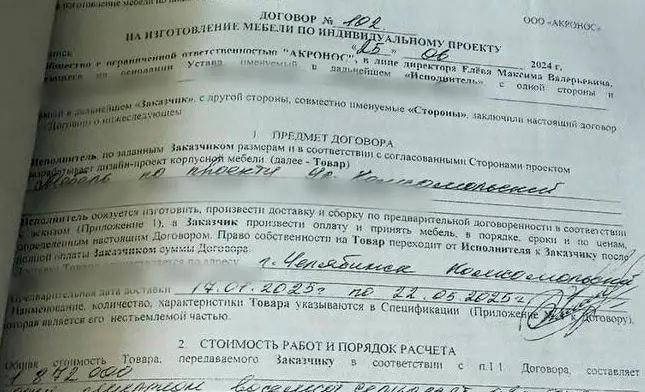 ООО «АКРОНОС»
ДОГОВОР № 102
НА ИЗГОТОВЛЕНИЕ МЕБЕЛИ ПО ИНДИВИДУАЛЬНОМУ ПРОЕКТУ
«25» 06 2024 г.
Общество с ограниченной ответственностью "АКРОНОС", в лице директора Елёва Максима Валерьевича,
на основании Устава, именуемый в дальнейшем «Исполнитель» с одной стороны и
в дальнейшем «Заказчик», с другой стороны, совместно именуемые «Стороны», заключили настоящий договор
о нижеследующем
1 ПРЕДМЕТ ДОГОВОРА
Исполнитель, по заданным Заказчиком размерам и в соответствии с согласованным Сторонами проектом
разрабатывает дизайн-проект корпусной мебели (далее - Товар)
Мебель по проекту Комсомольский
Исполнитель обязуется изготовить, произвести доставку и сборку по предварительной договоренности в соответствии
с эскизом (Приложение 1), а Заказчик произвести оплату и принять мебель, в порядке, сроки и по ценам,
определенным настоящим Договором. Право собственности на Товар переходит от Исполнителя к Заказчику после
полной оплаты Заказчиком суммы Договора.
по адресу г. Челябинск Комсомольский
Предварительная дата доставки 17.01.2025г по 22.05.2025г
Наименование, количество, характеристики Товара указываются в Спецификации (Приложение к Договору),
которая является его неотъемлемой частью.
2. СТОИМОСТЬ РАБОТ И ПОРЯДОК РАСЧЕТА
Общая стоимость Товара, передаваемого Заказчику в соответствии с п.1.1 Договора, составляет
1 872 000
миллион восемьсот семьдесят